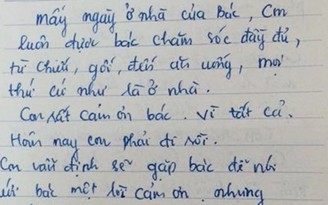 mấy ngày ở nhà của bác, Con
luôn được bác chăm sóc đầy đủ,
từ chăn, gối, đến ăn uống, mọi
thứ cứ như là ở nhà.
Con rất cảm ơn bác. vì tất cả.
Hôm nay con phải đi rồi.
Con vẫn định sẽ gặp bác để nói
với bác một lời cảm ơn. nhưng